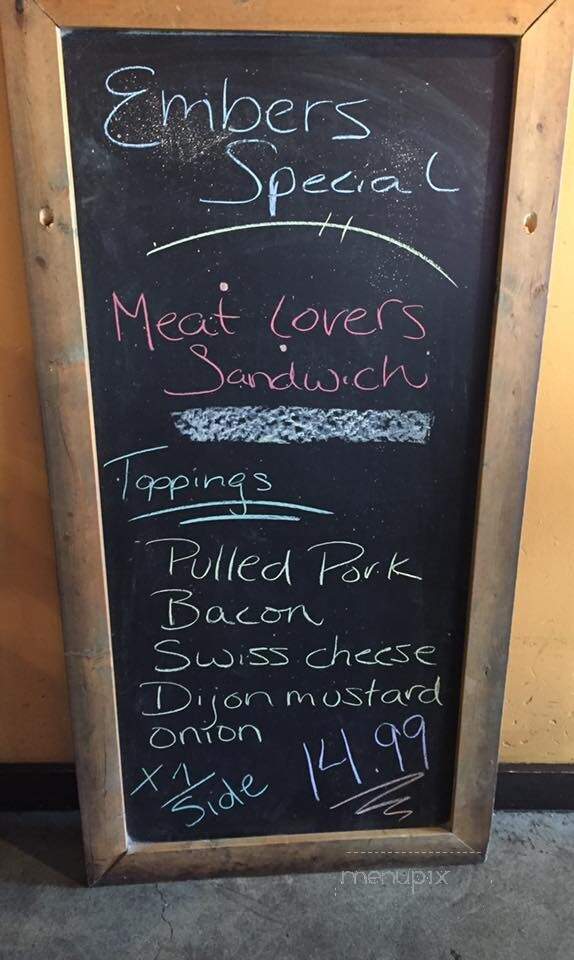 Embers
Special
Meat Lovers
Sandwich
Toppings
Pulled Pork
Bacon
Swiss cheese
Dijon mustard
onion
x 1 Side
14.99
menupix